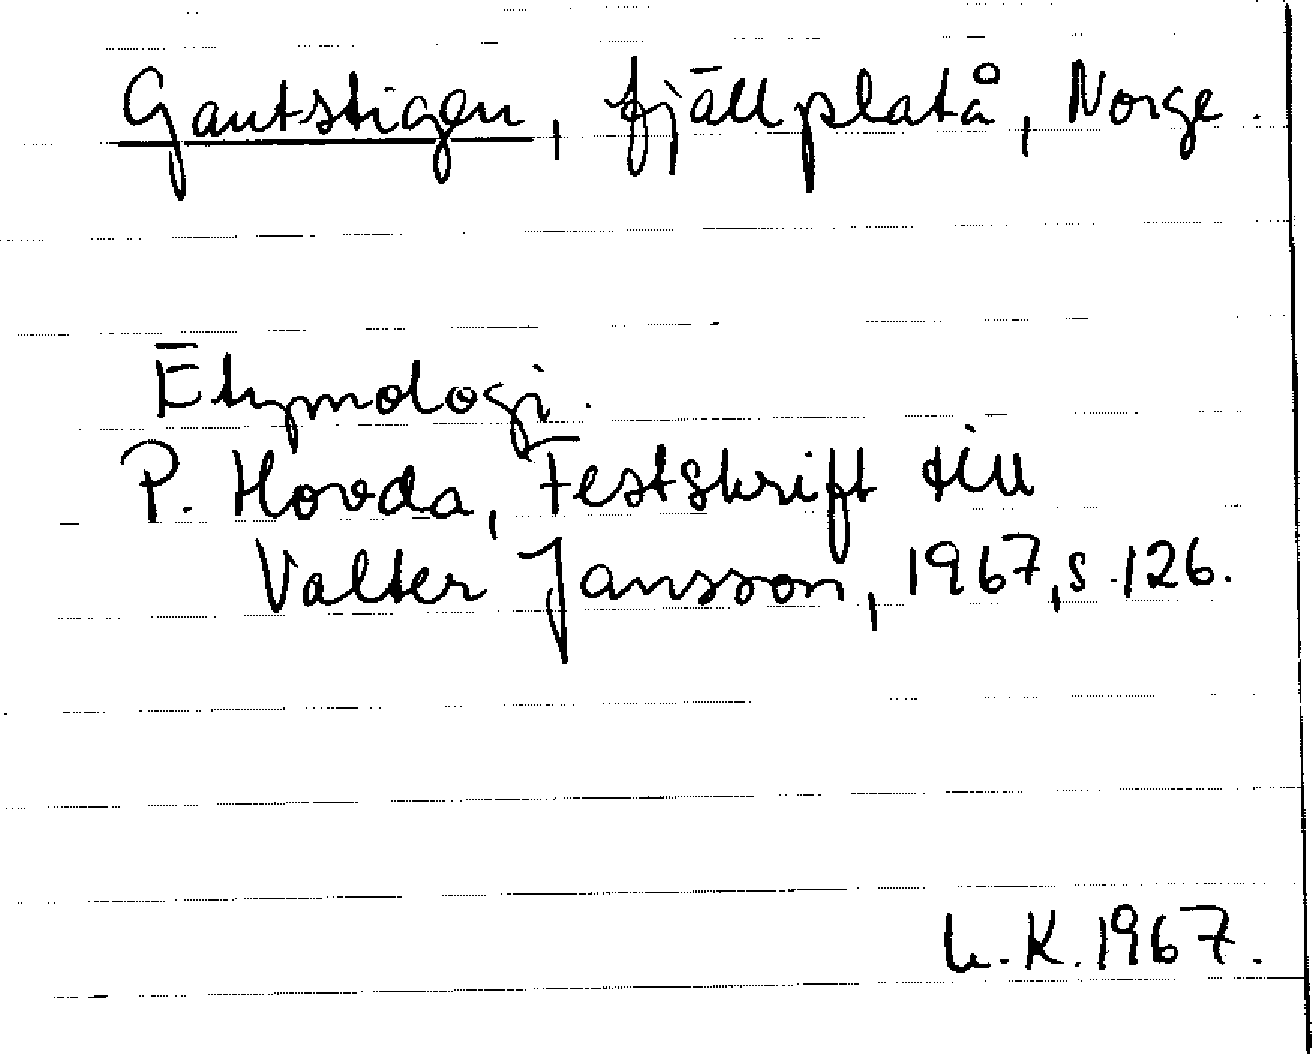 Gautstigen, fjällplatå, Norge.
Etymologi.
P. Hovda, Festskrift till
Valter Jansson, 1967, s. 126.
L. K. 1967.